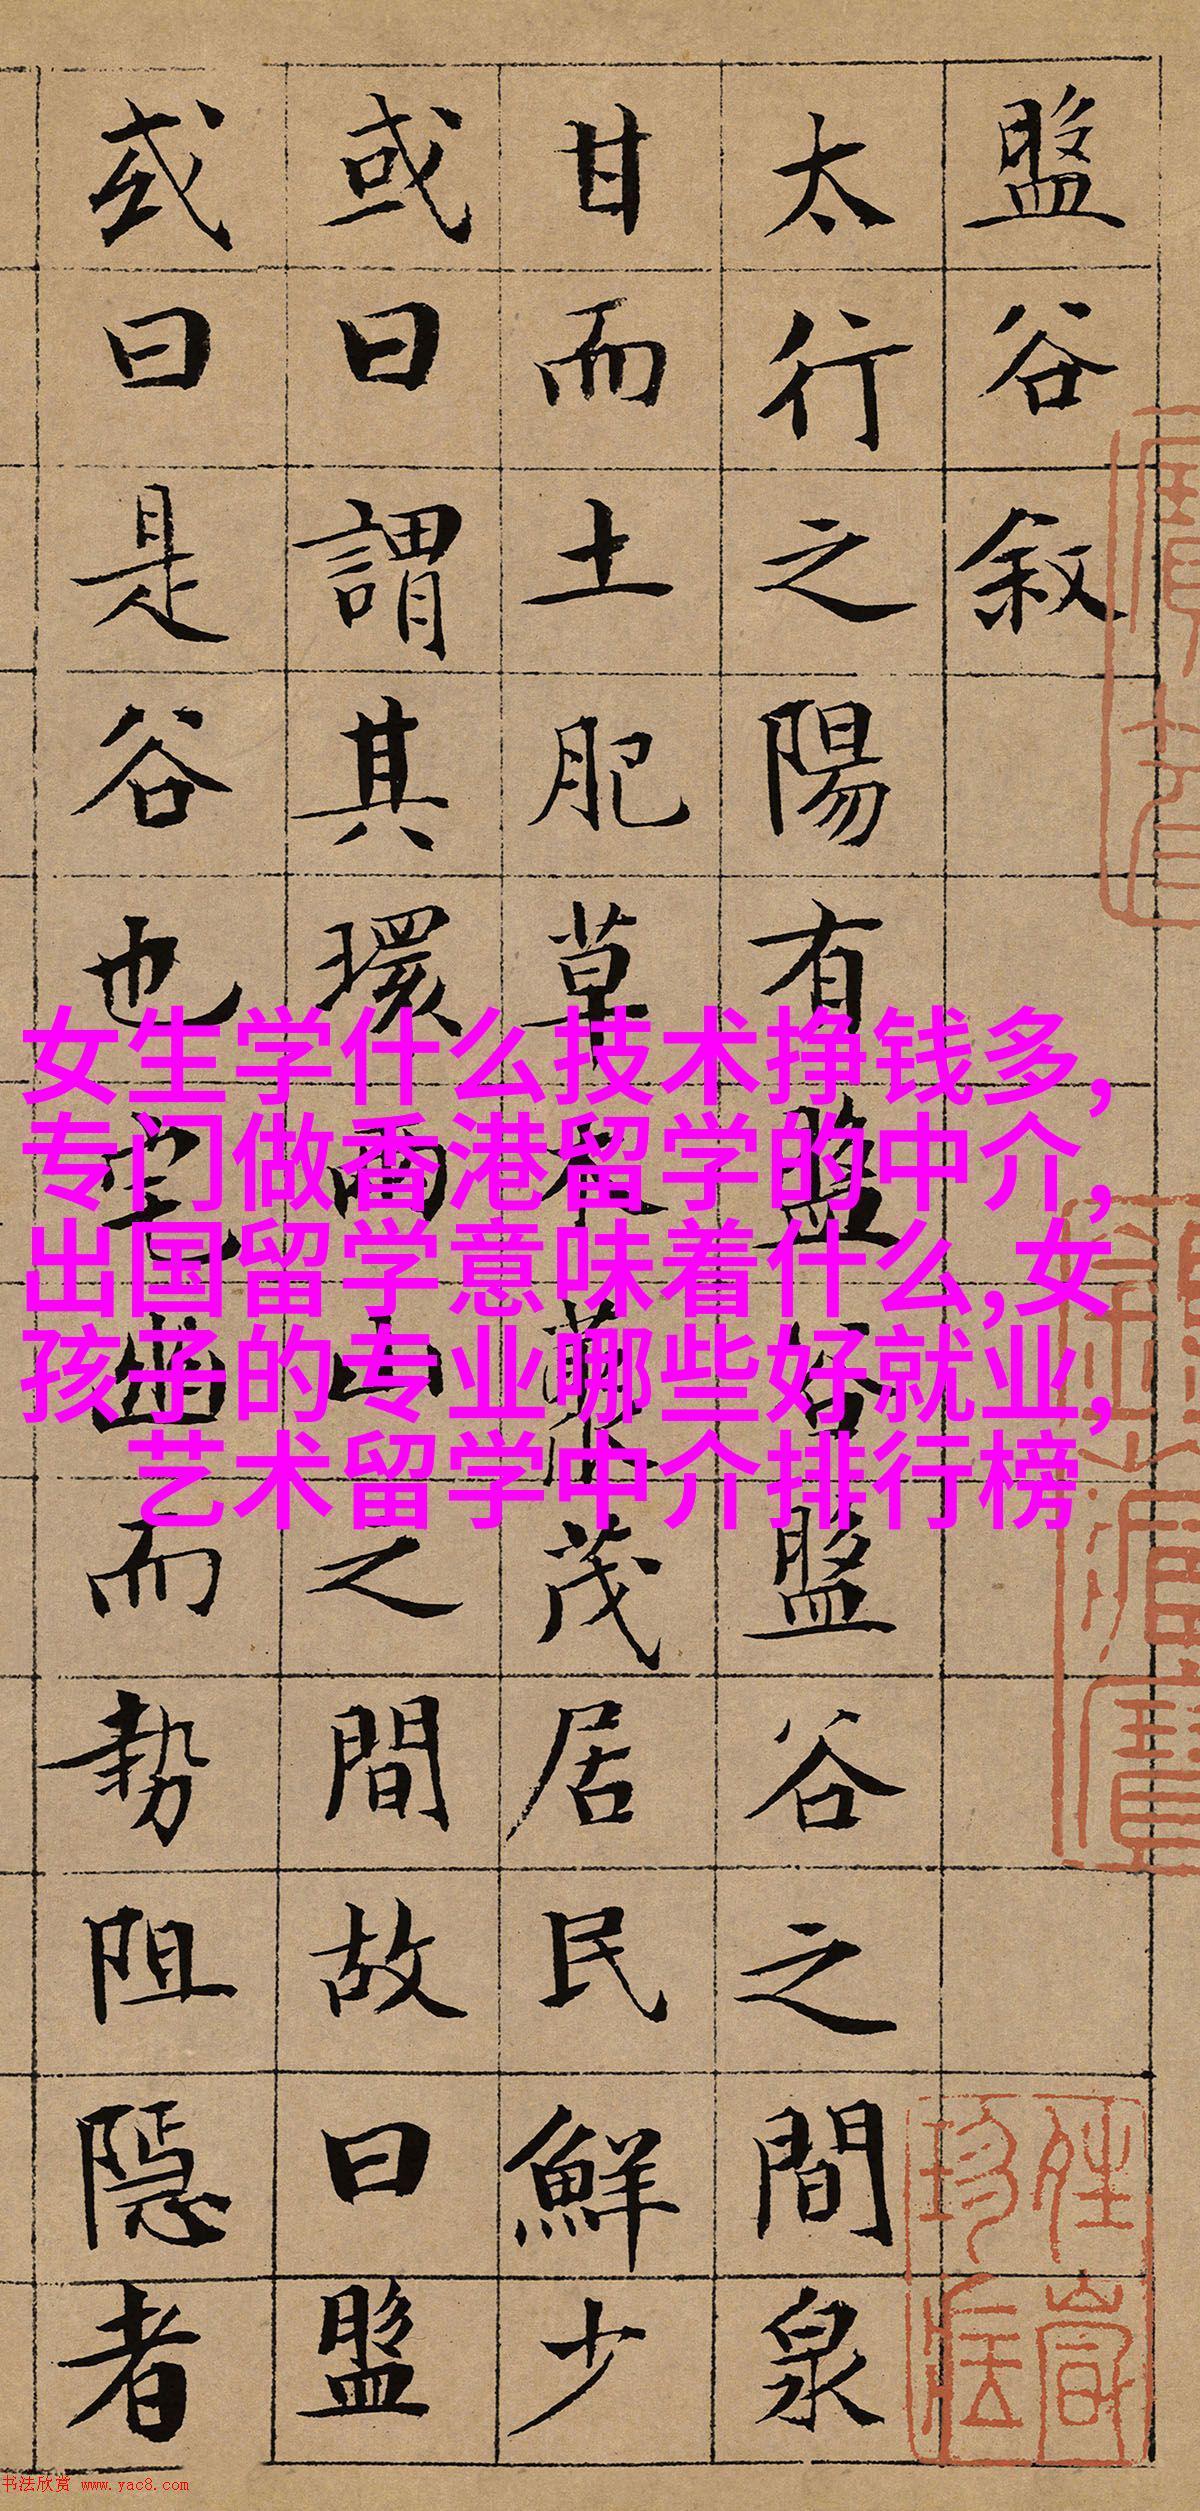 盤谷叙
太行之陽有盤谷盤谷之間泉
甘而土肥草木藂茂居民鮮少
或曰謂其環兩山之間故曰盤
或曰是谷也宅幽而勢阻隱者
女生学什么技术挣钱多,
专门做香港留学的中介,
出国留学意味着什么,女
孩子的专业哪些好就业,
艺术留学中介排行榜
书法欣赏 www.yac8.com